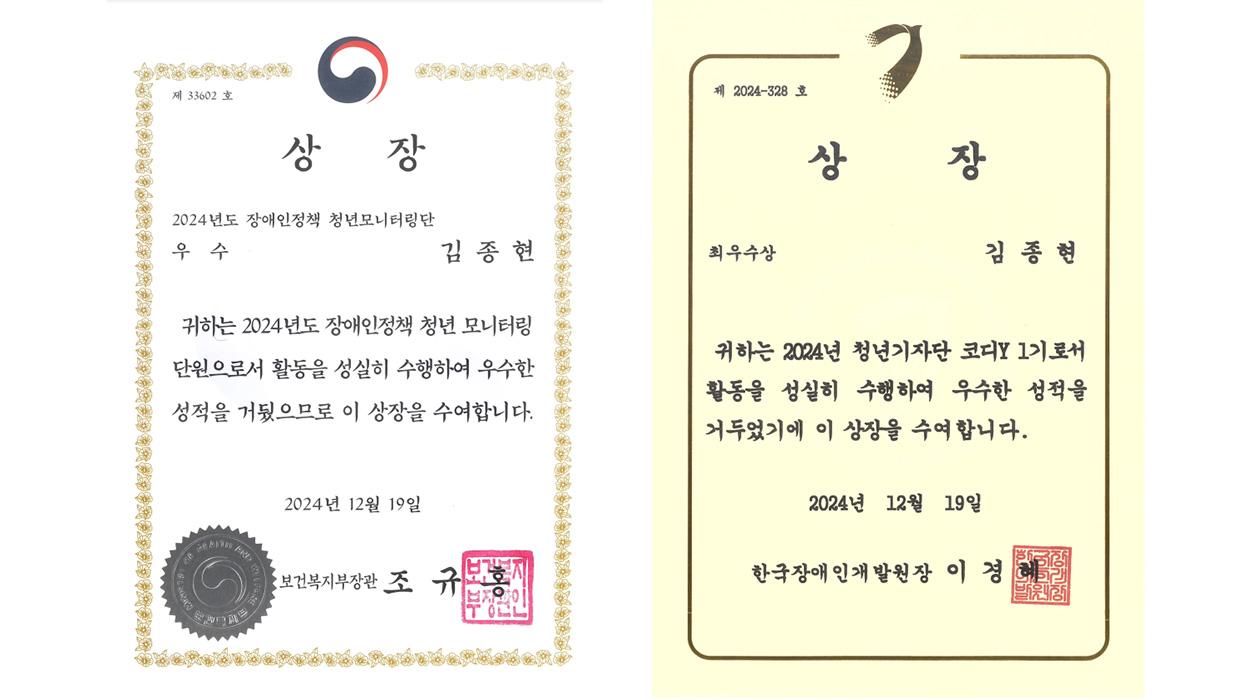 제 33602 호
상 장
2024년도 장애인정책 청년모니터링단
우 수 김 종 현
귀하는 2024년도 장애인정책 청년 모니터링
단원으로서 활동을 성실히 수행하여 우수한
성적을 거뒀으므로 이 상장을 수여합니다.
2024년 12월 19일
보건복지부장관 조 규 홍
보건복지
부장관인
제 2024-328 호
상 장
최우수상 김 종 현
귀하는 2024년 청년기자단 코디Y 1기로서
활동을 성실히 수행하여 우수한 성적을
거두었기에 이 상장을 수여합니다.
2024년 12월 19일
한국장애인개발원장 이 경 혜